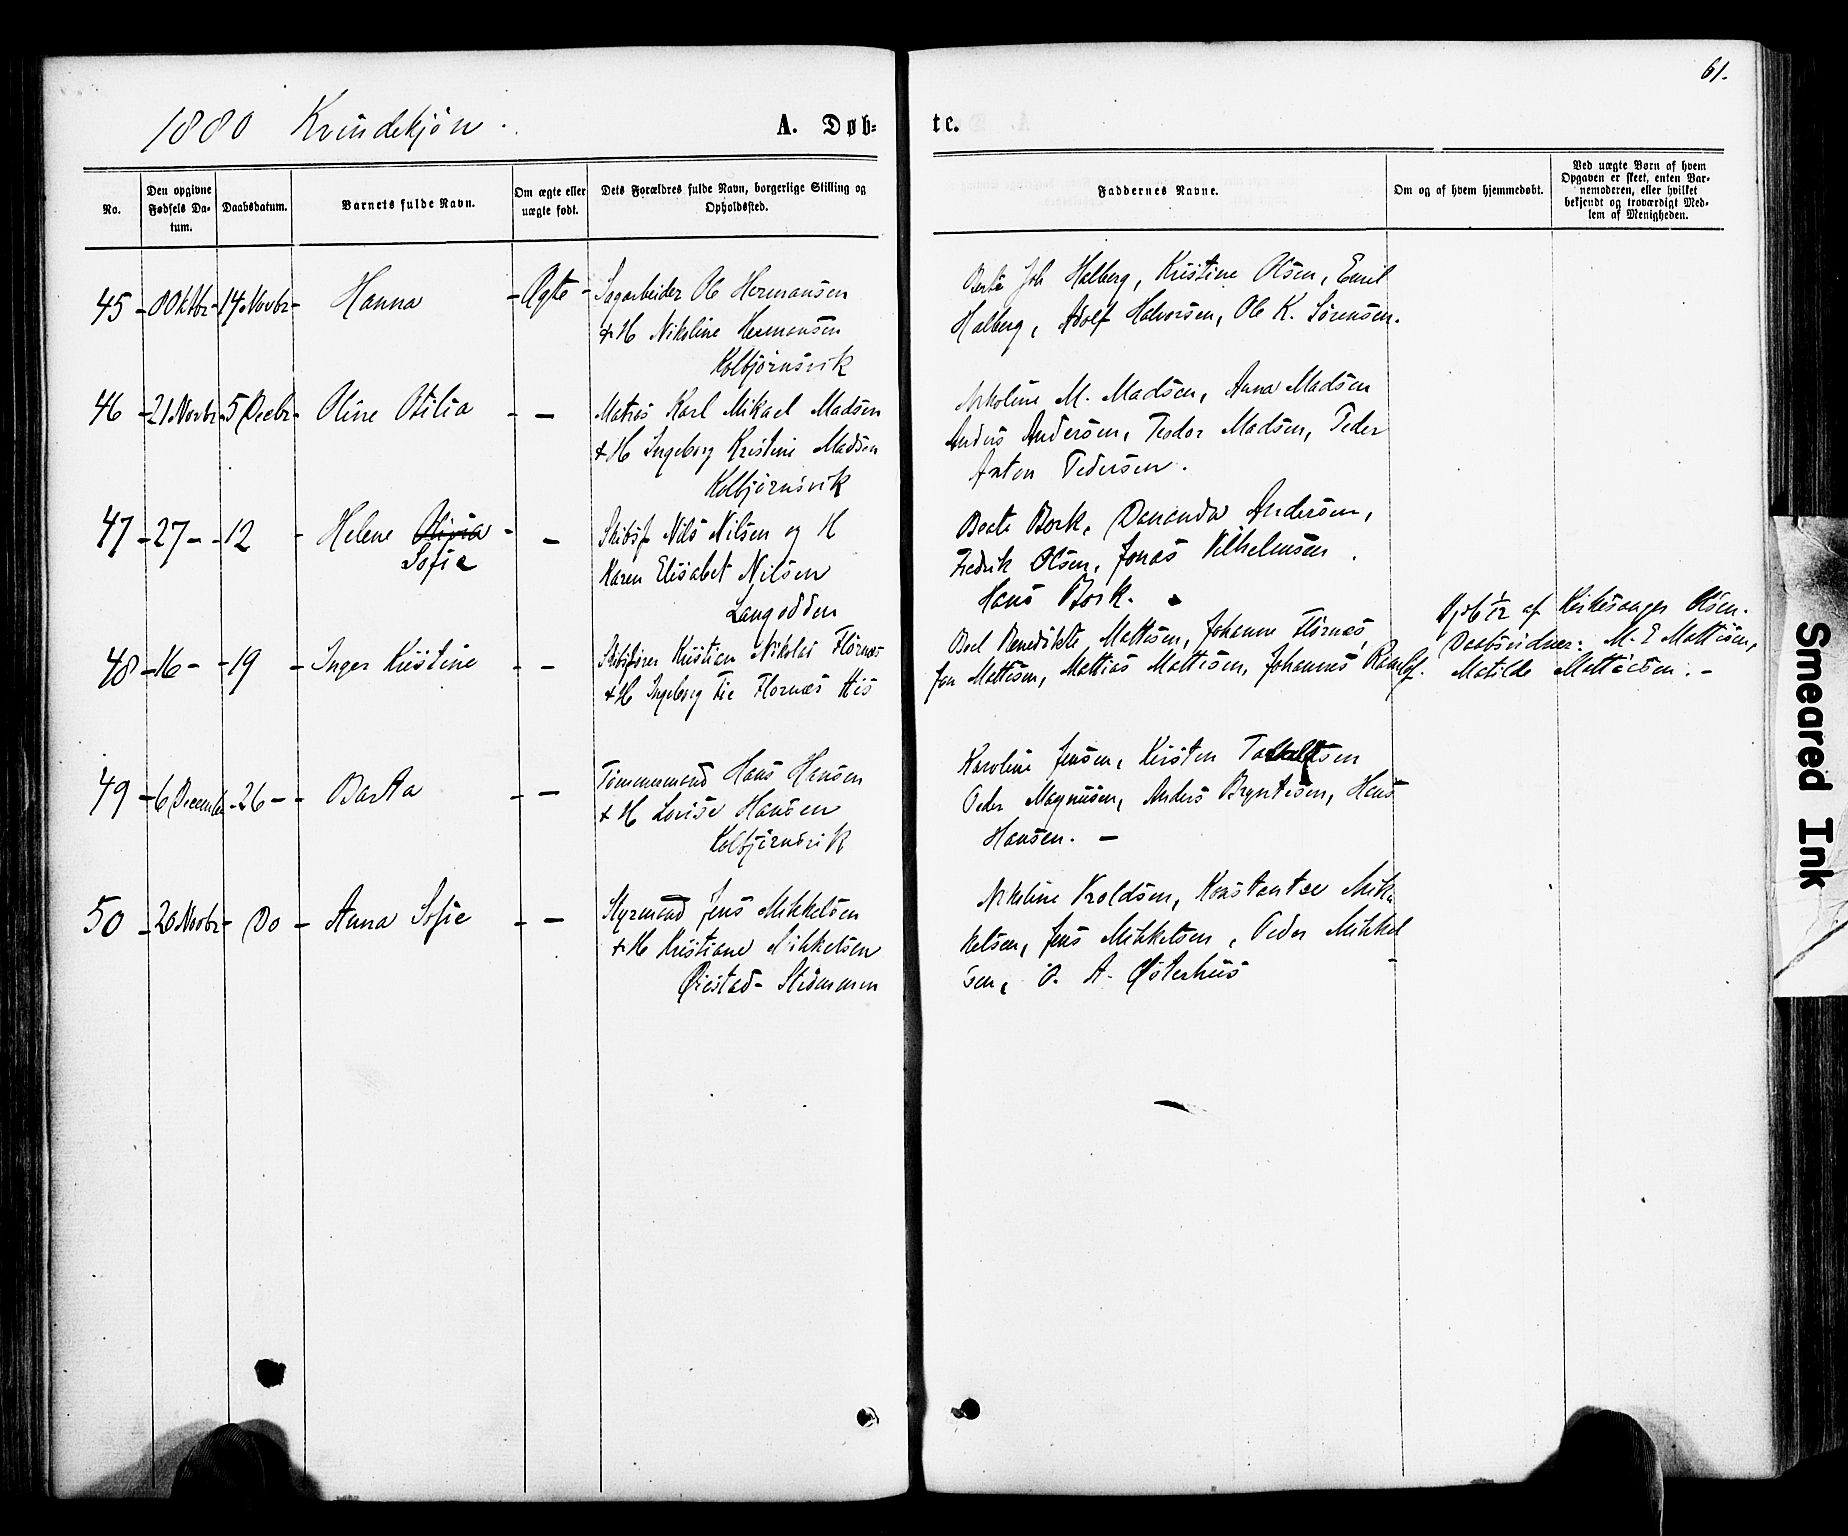 61.
1880 Kvindekjøn.
A. Døb-
te.
No.
Den opgivne Fødsels Da-tum.
Daabsdatum.
Barnets fulde Navn.
Om ægte eller uægte født.
Dets Forældres fulde Navn, borgerlige Stilling og Opholdssted.
Faddernes Navne.
Om og af hvem hjemmedøbt.
Ved uægte Børn af hvem Opgaven er skeet, enten Bar-nemoderen, eller hvilket bekjendt og troværdigt Med-lem af Menigheden.
45 - 8 Oktbr - 14 Novbr - Hanna - Ægte - Sagarbeider Ole Hermansen
& H Nikoline Hermansen
Kolbjørnsvik
Halberg, Kristine Olsen, Emil
Halberg, Adolf Halvorsen, Ole K. Sørensen.
46 - 21 Novbr - 5 Decbr - Oline Otilia - - Matros Karl Mikael Madsen
& H Ingeborg Kristine Madsen
Kolbjørnsvik
Nikoline M. Madsen, Anna Madsen
Anders Andersen, Teodor Madsen, Peder
Anton Pedersen.
47 - 27 - - 12 - Helene Olivia - -
Sofie
Skibsf Nils Nilsen og H
Karen Elisabet Nilsen
Langodden
Beate Bork, Andersen,
Fredrik Olsen, Jonas Vilhelmsen.
Hans Bork.
48 - 16 - - 19 - Inger Kristine - - Skibsfører Kristian Nikolai Flørnæs
& H Ingeborg Fie Flørnæs His
Boel Benedikte Mattisen, Johanne Flørnæs,
Jon Mattisen, Mattias Mattisen, Johannes
Hj.db 1/12 af Kirkesanger Olsen.
Daabsvidner: M. E Mattisen,
Matilde Mattisen. -
49 - 6 December - 26 - - Barta - - Tømmermand Hans Hansen
& H Lovise Hansen
Kolbjørnsvik
Karoline Jensen, Kirsten
Peder Magnusen, Anders Bryntesen, Hans
Hansen. -
50 - 20 Novbr - Do - Anna Sofie - - Styrmand Jens Mikkelsen
& H Kristiane Mikkelsen
Øiestad - Strømmen
Nikoline Troldsen, Konstantse Mik-
kelsen, Jens Mikkelsen, Peder Mikkel-
sen, O. A. Østerhus
Smeared Ink